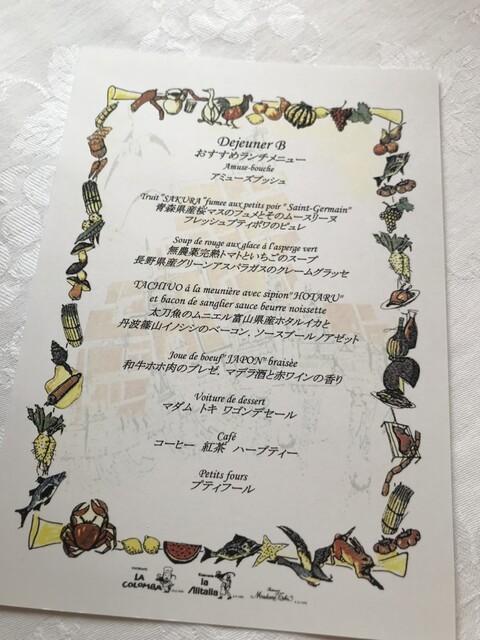 Dejeuner B
おすすめランチメニュー
Amuse-bouche
アミューズブッシュ
Truit "SAKURA" fumee aux petits poir " Saint-Germain"
青森県産桜マスのフュメとそのムースリーヌ
フレッシュプティポワのピュレ
Soup de rouge aux glace á l'asperge vert
無農薬完熟トマトといちごのスープ
長野県産グリーンアスパラガスのクレームグラッセ
TACHIVO á la meunière avec sipion "HOTARU"
et bacon de sanglier sauce beurre noissette
太刀魚のムニエル富山県産ホタルイカと
丹波篠山イノシシのベーコン. ソースブールノアゼット
Joue de boeuf" JAPON" braisèe
和牛ホホ肉のブレゼ. マデラ酒と赤ワインの香り
Voiture de dessert
マダム トキ ワゴンデセール
Café
コーヒー 紅茶 ハーブティー
Petits fours
プティフール
LA COLOMBA
la Alitalia
Madame Toki